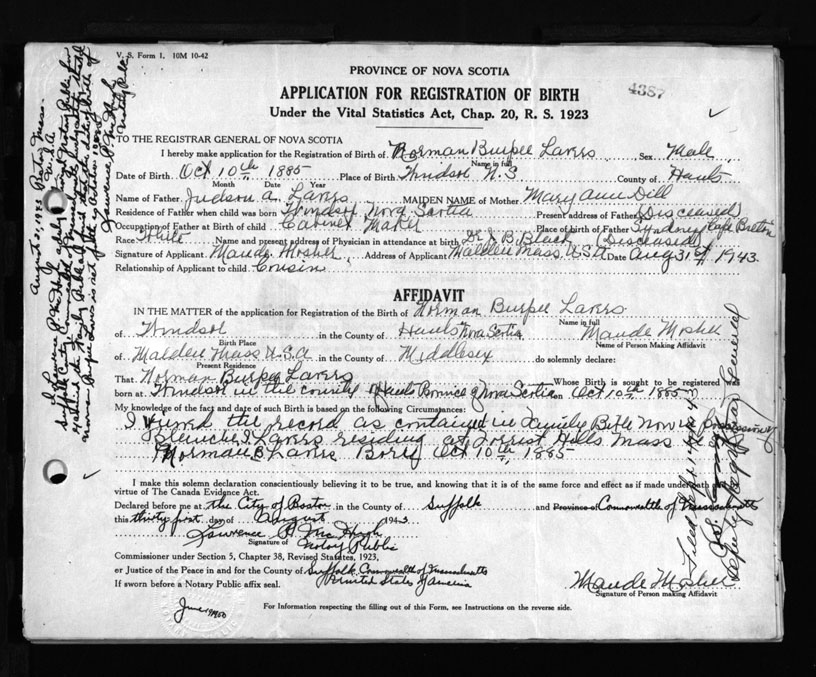 V. S. Form 1. 10M 10-42
PROVINCE OF NOVA SCOTIA
4387
APPLICATION FOR REGISTRATION OF BIRTH
Under the Vital Statistics Act, Chap. 20, R. S. 1923
TO THE REGISTRAR GENERAL OF NOVA SCOTIA
I hereby make application for the Registration of Birth of Norman Burpee Lavers Sex Male
Name in full
Date of Birth Oct 10th 1885 Place of Birth Windsor N.S County of Hants
Month Date Year
Name of Father Judson A. Lavers MAIDEN NAME of Mother Mary Ann Dill
Residence of Father when child was born Windsor Nova Scotia Present address of Father (Disceased)
Occupation of Father at Birth of child Cabinet Maker Place of Birth of Father Sydney Cape Breton
Race White Name and present address of Physician in attendance at birth Dr J B. Black (Disceased)
Signature of Applicant Maude Mosher Address of Applicant Malden Mass. U.S.A Date Aug 31st 1943.
Relationship of Applicant to child Cousin
AFFIDAVIT
IN THE MATTER of the application for Registration of the Birth of Norman Burpee Lavers
Name in full
of Windsor in the County of Hants Nova Scotia Maude Mosher
Birth Place Name of Person Making Affidavit
of Malden Mass U.S.A in the County of Middlesex do solemnly declare:
Present Residence
That Norman Burpee Lavers Whose Birth is sought to be registered was
born at Windsor in the county Hants Province of Nova Scotia on Oct 10th 1885
My knowledge of the fact and date of such Birth is based on the following Circumstances:
I the record as contained in Family Bible now in possession of
Blanche I. Lavers residing at Forrest Hills Mass
Norman B Lavers Born Oct 10th, 1885
And I make this solemn declaration conscientiously believing it to be true, and knowing that it is of the same force and effect as if made under oath and
virtue of The Canada Evidence Act.
Declared before me at the City of Boston in the County of Suffolk and Province of Commonwealth of Massachusetts
this thirty first day of August 1943
Lawrence P. McHugh
Signature of Notary Public
Commissioner under Section 5, Chapter 38, Revised Statutes, 1923,
or Justice of the Peace in and for the County of Suffolk Commonwealth of Massachusetts
United States of America
If sworn before a Notary Public affix seal.
Maude Mosher
Signature of Person making Affidavit
For Information respecting the filling out of this Form, see Instructions on the reverse side.
August 31, 1943 Boston Mass.
U.S.A.
I Lawrence P. McHugh
Notary Public
Deputy Registrar General